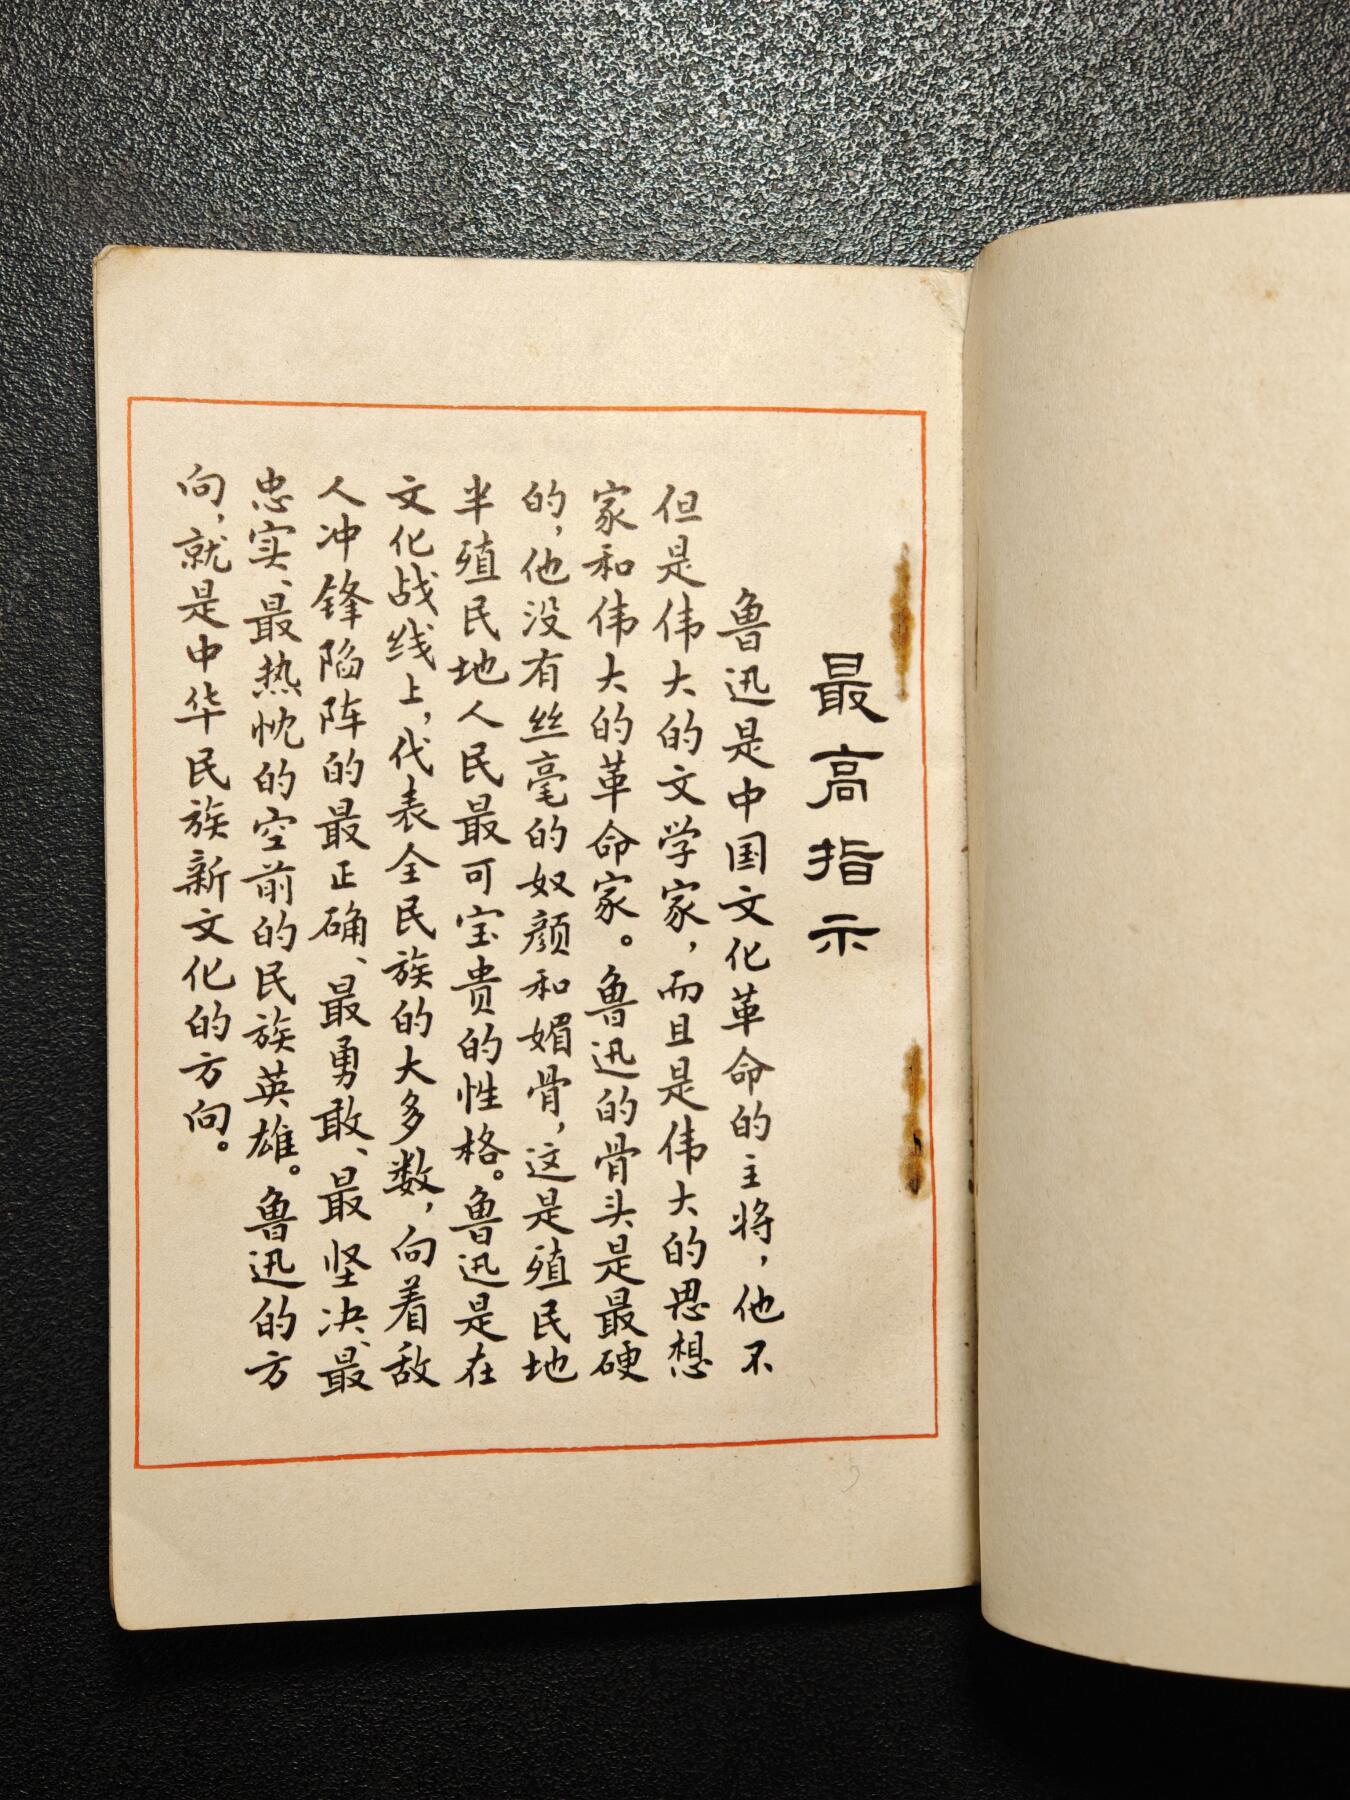 最高指示
鲁迅是中国文化革命的主将，他不
但是伟大的文学家，而且是伟大的思想
家和伟大的革命家。鲁迅的骨头是最硬
的，他没有丝毫的奴颜和媚骨，这是殖民地
半殖民地人民最可宝贵的性格。鲁迅是在
文化战线上，代表全民族的大多数，向着敌
人冲锋陷阵的最正确、最勇敢、最坚决、最
忠实、最热忱的空前的民族英雄。鲁迅的方
向，就是中华民族新文化的方向。